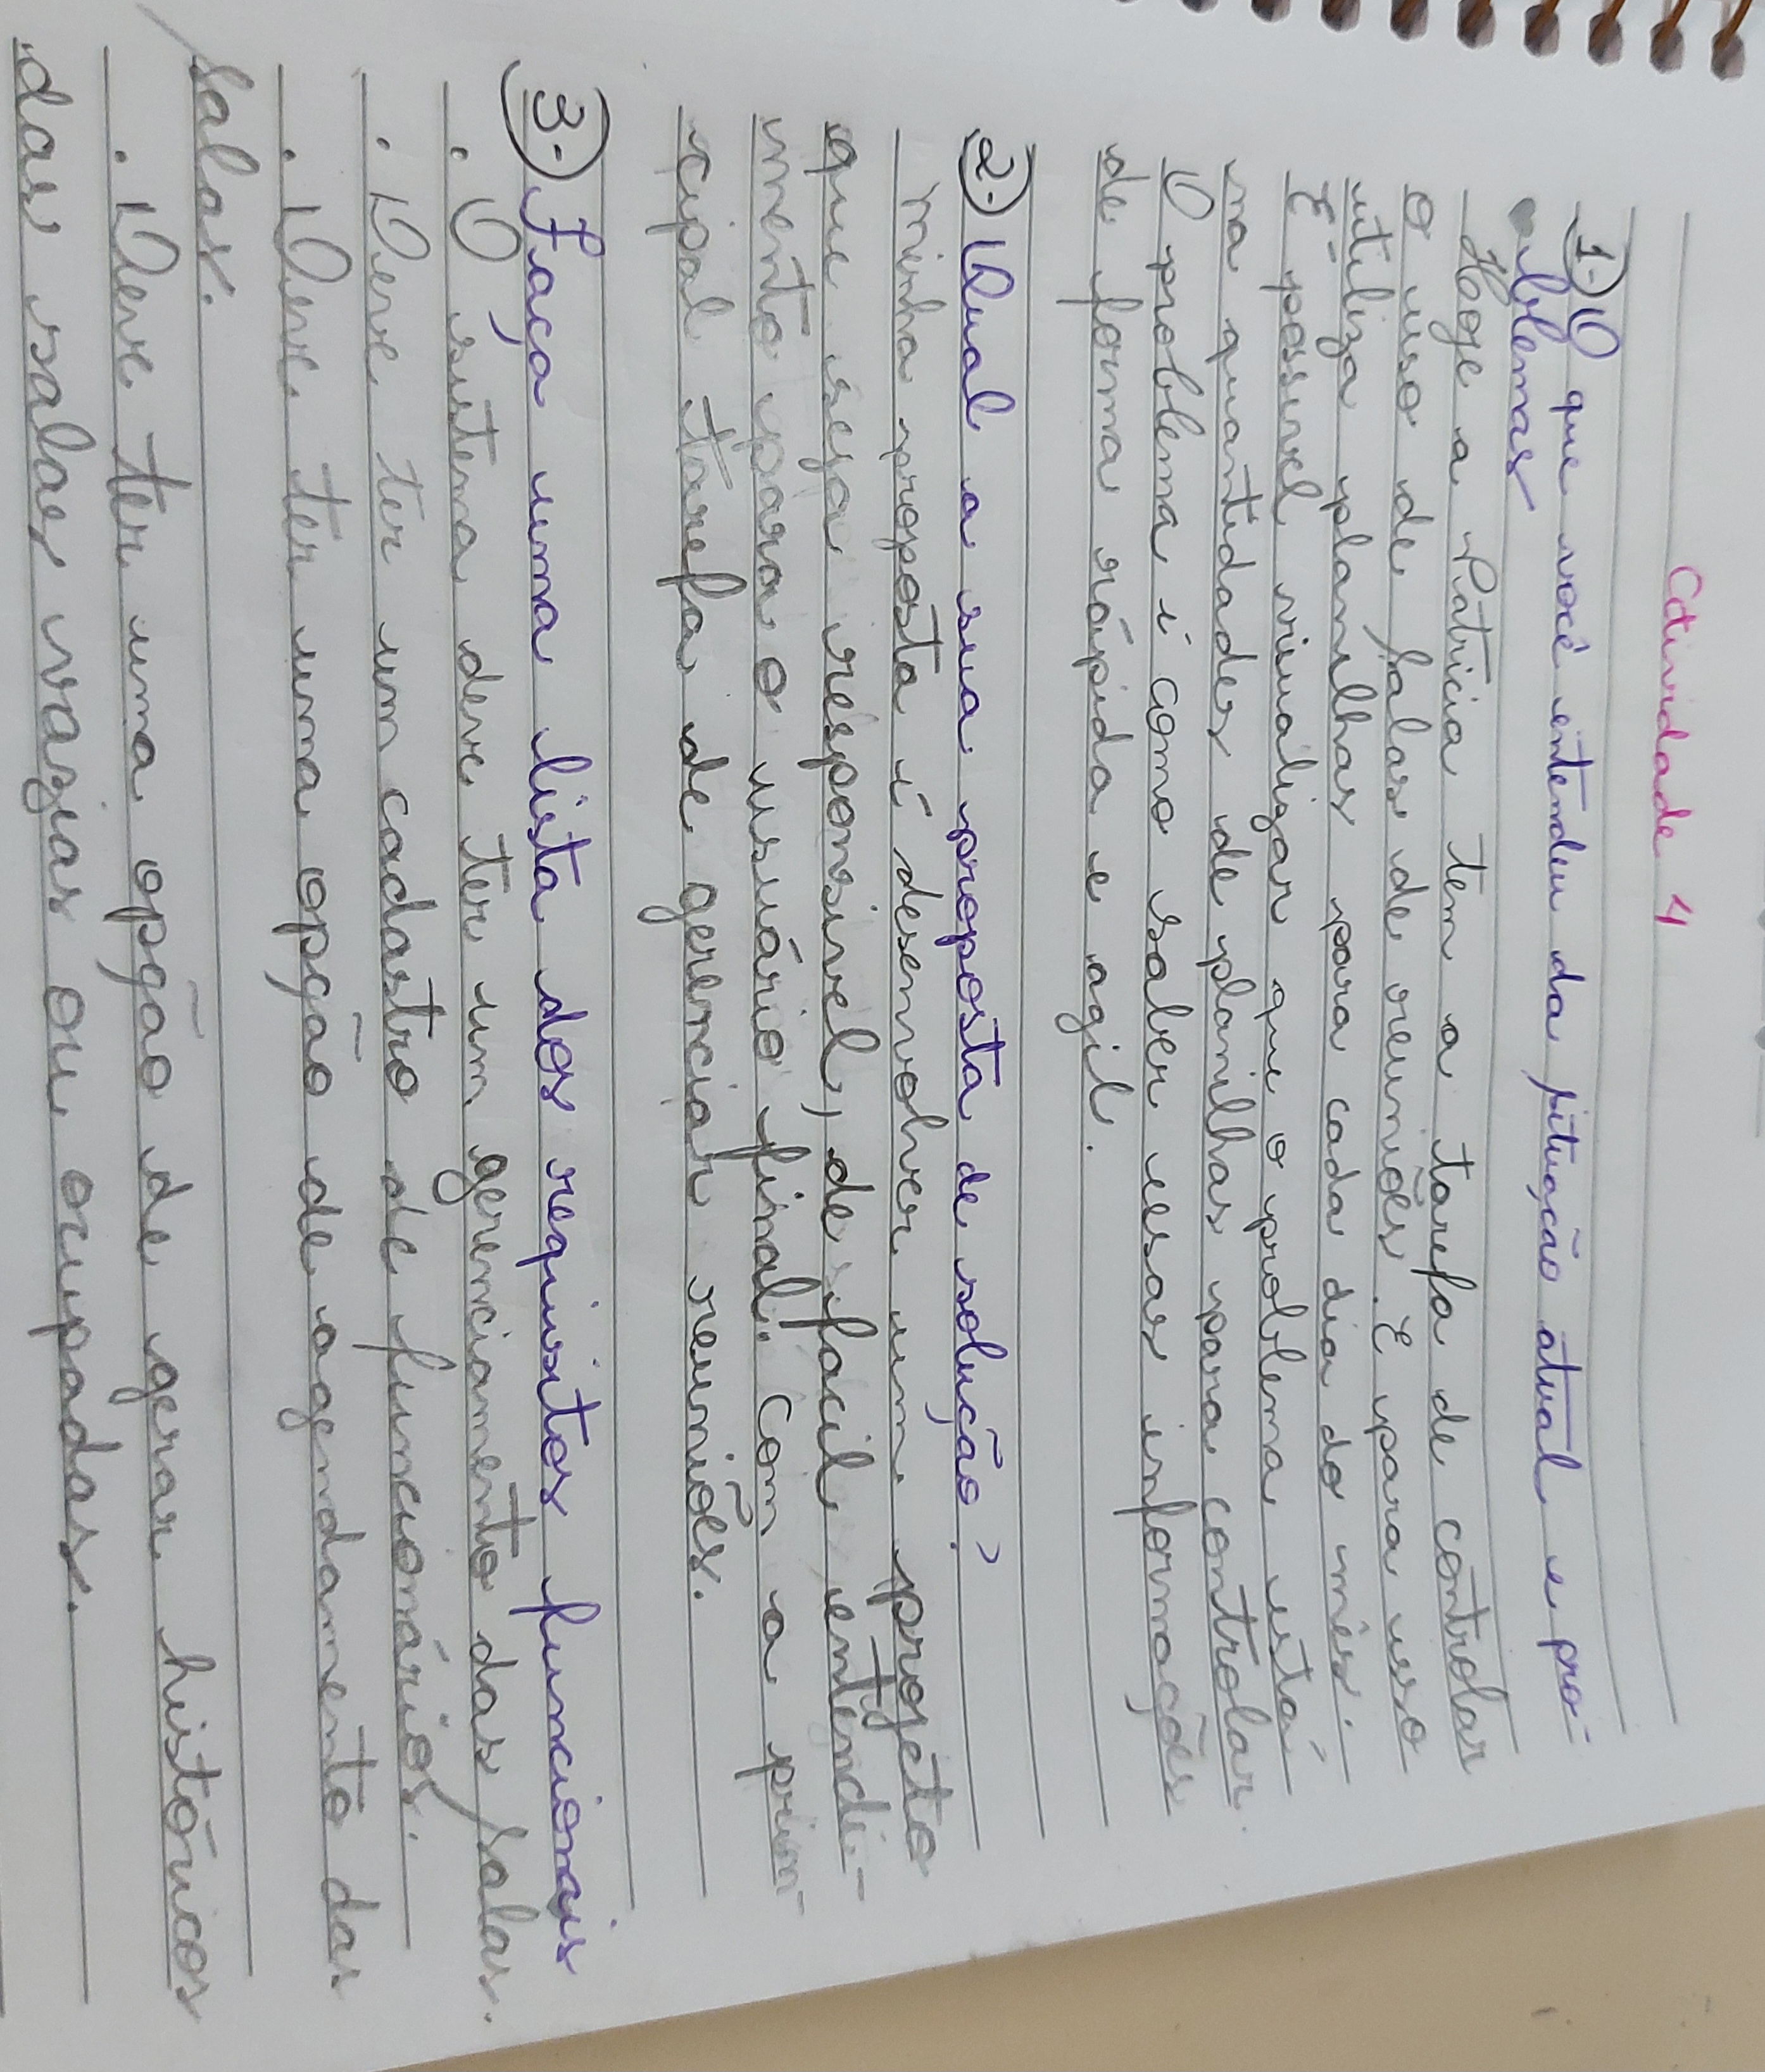 Atividade 4
1-) O que você entendeu da situação atual e pro-
blemas
Hoge a Patricia tem a tarefa de controlar
o uso de salas de reuniões. E para isso
utiliza planilhas para cada dia do mês.
É possivel visualizar que o problema está
na quantidades de planilhas para controlar.
O problema é como saber essas informações
de forma rápida e agil.
2-) Qual a sua proposta de solução?
Minha proposta é desenvolver um projeto
que seja responsivel, de facil entendi-
mento para o usuário final. Com a prin-
cipal tarefa de gerenciar reuniões.
3-) Faça uma lista dos requisitos funcionais
. O sistema deve ter um gerenciamento das salas.
. Deve ter um cadastro de funcionários.
. Deve ter uma opção de agendamento das
salas.
. Deve ter uma opção de gerar históricos
das salas vazias ou ocupadas.